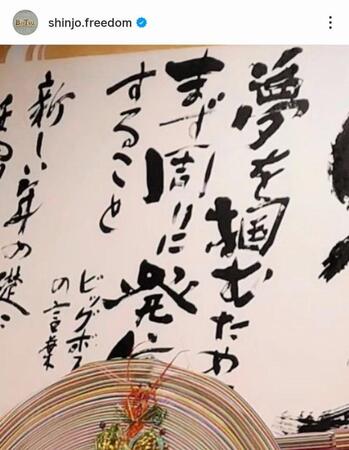 shinjo.freedom
夢を掴むため
まず周りに発信
すること
ビッグボス
の言葉
新しい年の礎に